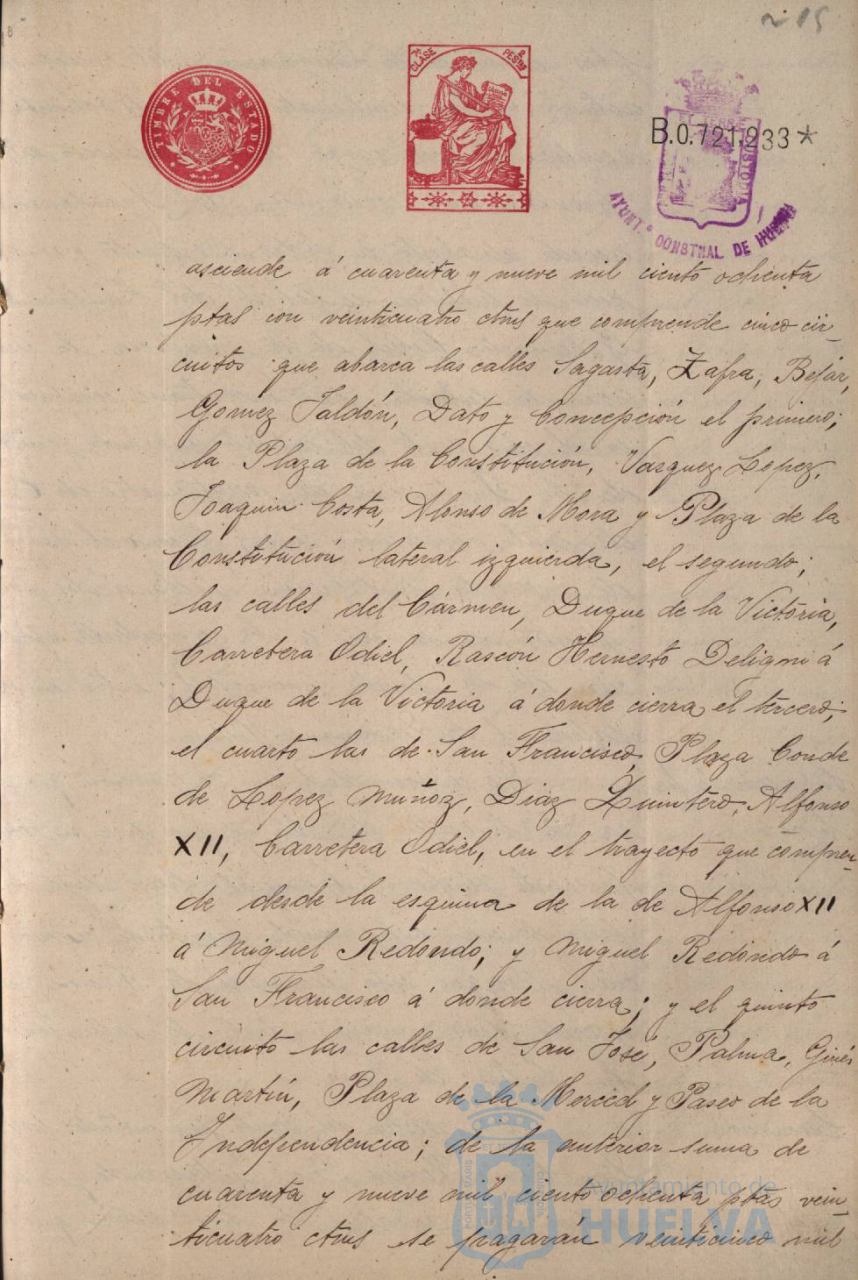 215
TIMBRE DEL ESTADO
7ª CLASE
2 PESTAS
B.0.721,233*
CUSTODIA
AYUNTº CONSTNAL DE HUELVA
asciende á cuarenta y nueve mil ciento ochenta
ptas con veinticuatro ctms que comprende cinco cir-
cuitos que abarca las calles Sagasta, Zafra, Bejar,
Gomez Jaldón, Dato y Concepción el primero;
la Plaza de la Constitución, Vazquez Lopez,
Joaquin Costa, Alonso de Mora y Plaza de la
Constitución lateral izquierda, el segundo;
las calles del Cármen, Duque de la Victoria,
Carretera Odiel, Rascón Hernesto Deligni á
Duque de la Victoria á donde cierra el tercero;
el cuarto las de San Francisco, Plaza Conde
de Lopez Muñoz, Diaz Quintero, Alfonso
XII, Carretera Odiel, en el trayecto que compren-
de desde la esquina de la de Alfonso XII
á Miguel Redondo; y Miguel Redondo á
San Francisco á donde cierra; y el quinto
circuito las calles de San José, Palma, Ginés
Martín, Plaza de la Merced y Paseo de la
Independencia; de la anterior suma de
cuarenta y nueve mil ciento ochenta ptas vein-
ticuatro ctms se pagarán veinticinco mil
Ayuntamiento de
HUELVA